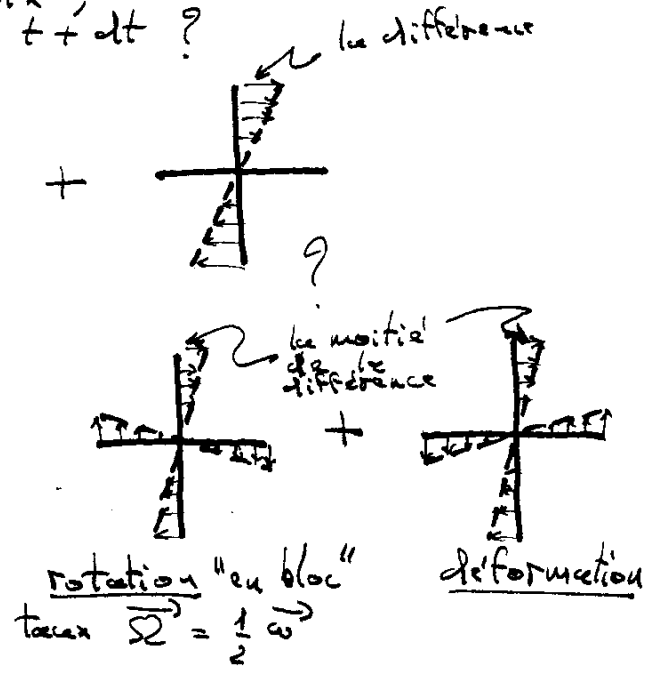 t + dt ?
la différence
+
?
la moitié
de la
différence
+
rotation "en bloc"
déformation
taux Ω⃗ = 1/2 ω⃗